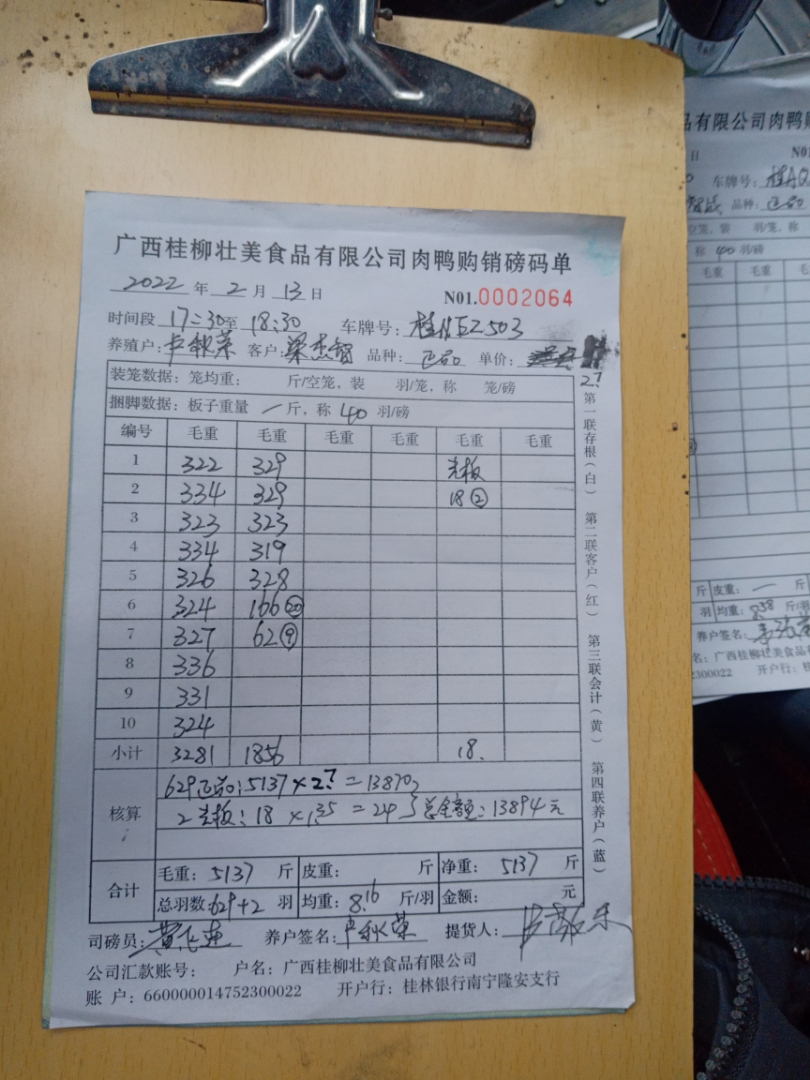 广西桂柳壮美食品有限公司肉鸭购销磅码单
2022 年 2 月 13 日 N01.0002064
时间段 17:30 至 18:30 车牌号:
养殖户: 客户: 梁杰智 品种: 正品 单价:
2.7
装笼数据:笼均重: 斤/空笼,装 羽/笼,称 笼/磅
捆脚数据:板子重量 一 斤,称 40 羽/磅
编号 毛重 毛重 毛重 毛重 毛重 毛重
1 322 329 次板
2 334 329 18②
3 323 323
4 334 319
5 326 328
6 324 166⑳
7 327 62⑨
8 336
9 331
10 324
小计 3281 1856 18.
核算
629正品:5137×2.7=13870
2次板:18×1.35=24 总金额:13894元
合计
毛重:5137 斤 皮重: 斤 净重:5137 斤
总羽数629+2 羽 均重:8.16 斤/羽 金额: 元
司磅员: 养户签名: 提货人:
公司汇款账号: 户名:广西桂柳壮美食品有限公司
账 户:660000014752300022 开户行:桂林银行南宁隆安支行
第一联存根(白) 第二联客户(红) 第三联会计(黄) 第四联养户(蓝)
有限公司肉鸭购
日 N01
车牌号:桂A
品种:正品
空笼,装 羽/笼,称
称 40 羽/磅
毛重 毛重
斤 皮重: 一 斤
羽 均重:8.38 斤/羽
养户签名:
名:广西桂柳壮美食品有
2300022 开户行:桂